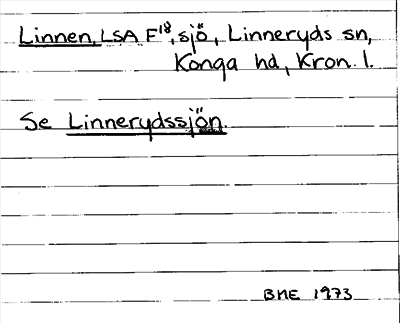 Linnen, LSA F18, sjö, Linneryds sn,
Konga hd, Kron. l.
Se Linnerydssjön.
BME 1973